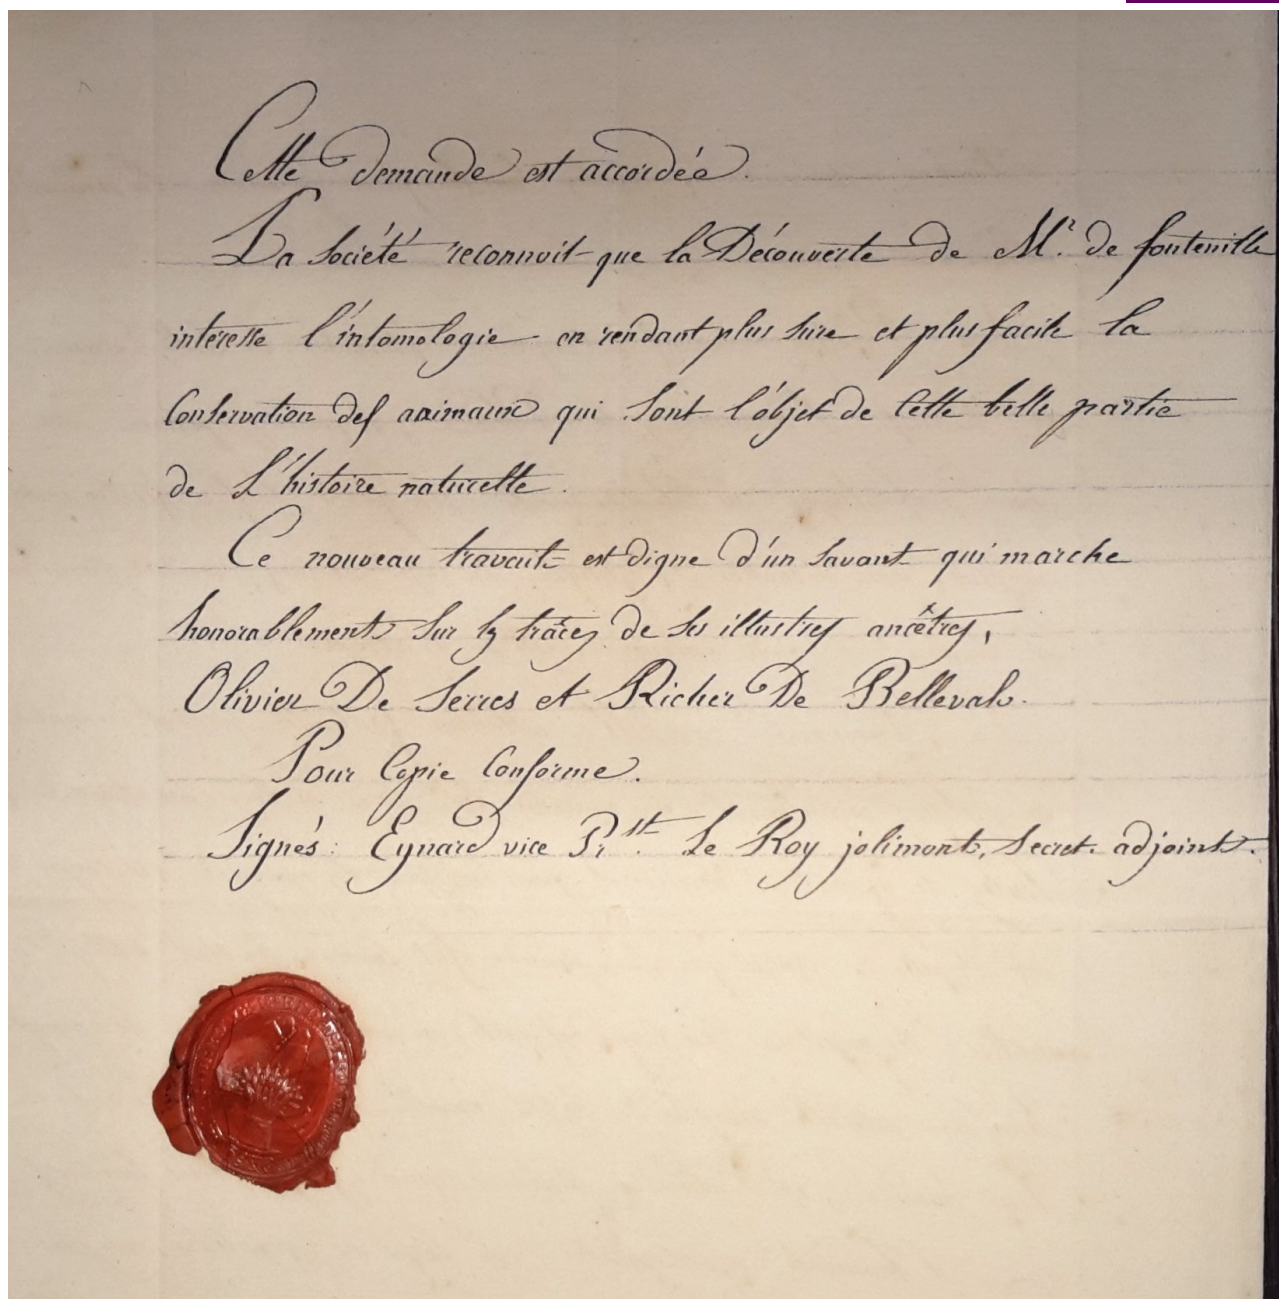 Cette demande est accordée.
La Société reconnoit que la Découverte de Mr. de fontenille
intéresse l'intomologie en rendant plus sure et plus facile la
Conservation des animaux qui sont l'objet de Cette belle partie
de L'histoire naturelle.
Ce nouveau travail est digne d'un savant qui marche
honorablement sur les traces de ses illustres ancêtres,
Olivier De Serres et Richer De Belleval.
Pour Copie Conforme.
Signés: Eynard vice Pr.st. Le Roy jolimont, Secret. adjoint.